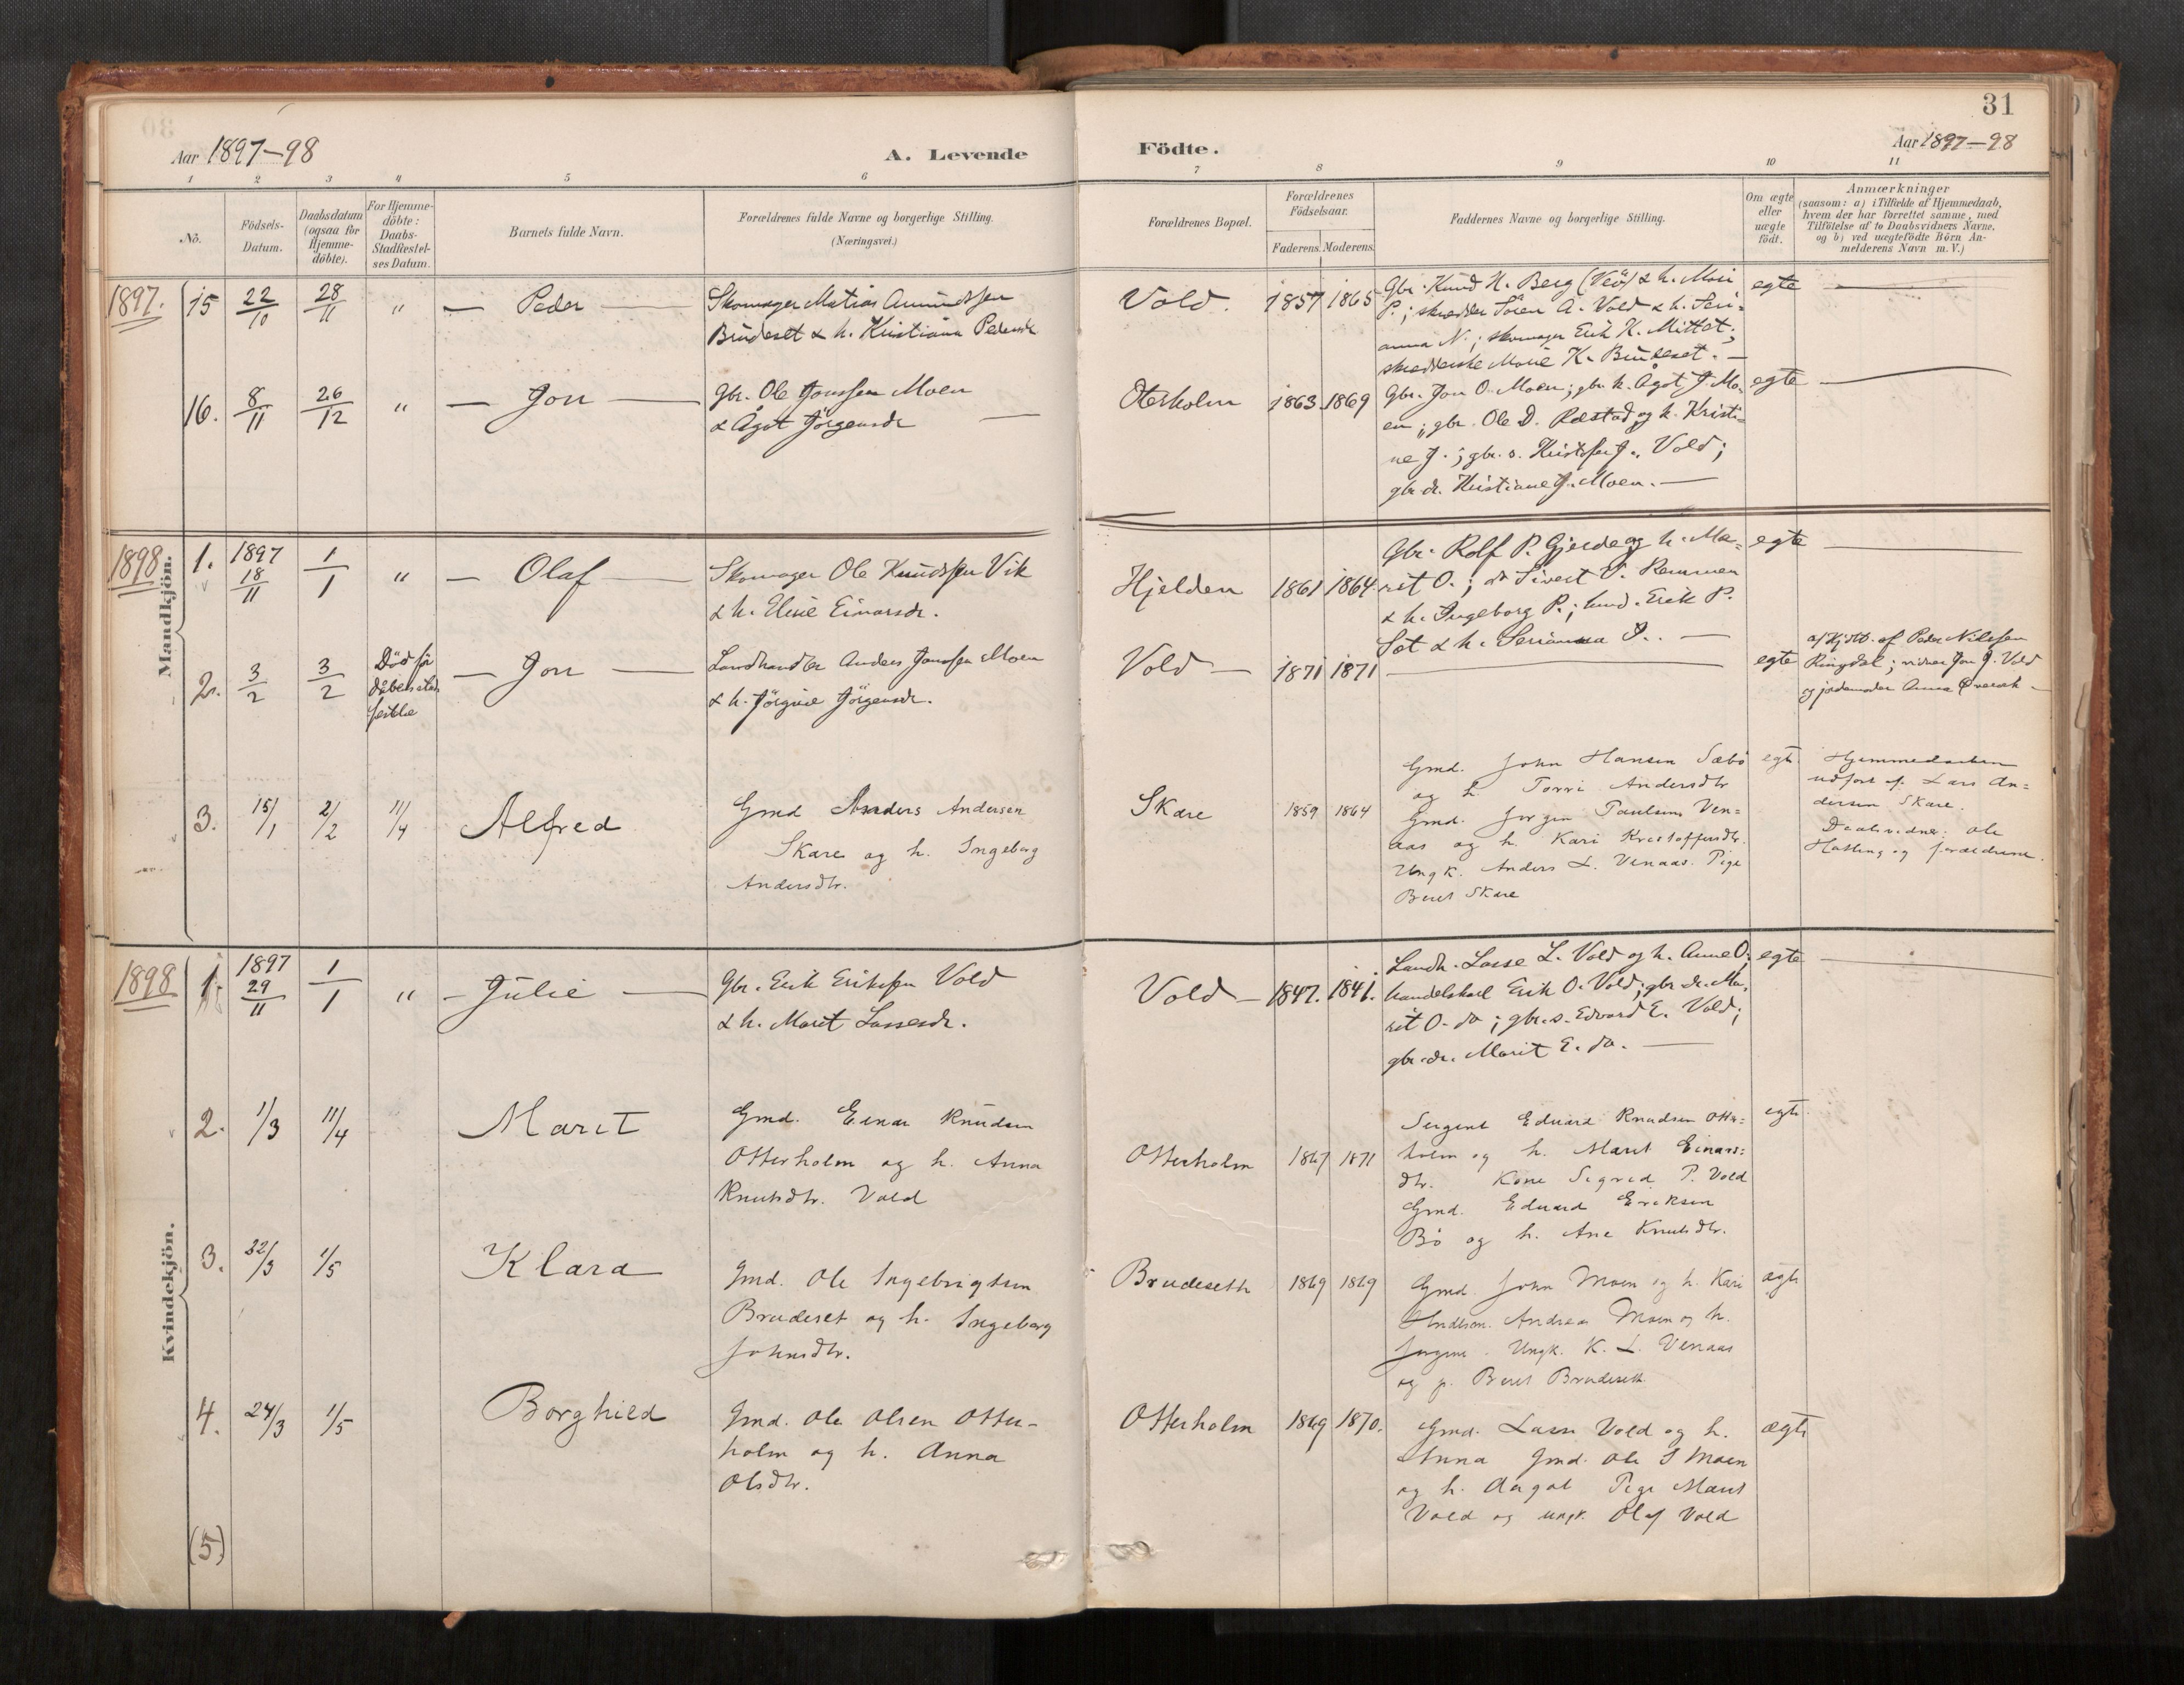 31
Aar 1897-98
A. Levende
Födte.
Aar 1897-98
1 2 3 4 5 6 7 8 9 10 11
No.
Födsels-
Datum.
Daabsdatum
(ogsaa for
Hjemme-
döbte).
For Hjemme-
döbte:
Daabs-
Stadfæstel-
ses Datum.
Barnets fulde Navn.
Forældrenes fulde Navne og borgerlige Stilling.
(Næringsvei.)
Forældrenes Bopæl.
Forældrenes
Födselsaar.
Faderens. Moderens.
Faddernes Navne og borgerlige Stilling.
Om ægte
eller
uægte
født.
Anmærkninger
(saasom: a) i Tilfælde af Hjemmedaab,
hvem der har forrettet samme, med
Tilföielse af to Daabsvidners Navne.
og b) ved uægtefödte Börn An-
melderens Navn m. V.)
1897.
15 22/10 28/11 " — Peder —
Skomager Matias Amundssen
Brudeset & h. Kristiana Pedersdr
Vold. 1857 1865
Gbr. Knud N. Berg (Veö) & h. Mari
P.; skrædder Sören A. Vold & h. Seri-
anna N.; skomager Erik K. Mittet;
skrædderske Marie K. Brudeset. —
egte —
16. 8/11 26/12 " — Jon —
Gbr. Ole Jonssen Moen
& Ågot Jörgensdr —
Oterholm 1863. 1869
Gbr. Jon O. Moen; gbr. k. Ågot J. Mo-
en; gbr. Ole D. Rœstad og h. Kristi-
ne J.; gbr. s. Kristofer J. Vold;
gbr. dr. Kristiane J. Moen. —
egte —
1898
Mandkjön.
1. 1897 18/11 1/1 " — Olaf —
Skomager Ole Knudssen Vik
& h. Eline Einarsdr.
Hjelden 1861 1864
Gbr. Rolf P. Gjerde og h. Ma-
rit O.; do Sivert V. Remmen
& h. Ingeborg P.; husmd. Erik P.
Set & h. Serianna P. —
egte —
2. 3/2 3/2
Död för
dåbens stad-
festelse
— Jon —
Landhandler Anders Jonssen Moen
& h. Jörgine Jörgensdr.
Vold — 1871 1871 —
egte
af Hjdb. af Peder Nilssen
Ringdal; vidner Jon J. Vold
og jordmoder Anna Øveraas —
3. 15/1 2/2 11/4 Alfred
Gmd Anders Andersen
Skare og h. Ingeborg
Andersdtr.
Skare 1859 1864
Gmd. John Hansen Sæbö
og h. Torri Andersdtr
Gmd. Jørgen Paulsen Ven=
aas og h. Kari Kristoffersdtr.
Ungk. Anders L. Venaas. Pige
Beret Skare
egte
Hjemmedaaben
udført af Lars An=
dersen Skare.
Daabsvidner: Ole
Hatling og forældrene.
1898
Kvindekjön.
1. 1897 29/11 1/1 " — Julie —
Gbr. Erik Erikssen Vold
& h. Marit Lassesdr.
Vold — 1847. 1841.
Landh. Lasse L. Vold og h. Anne O;
handelskarl Erik O. Vold; gbr. dr. Ma-
rit O. do; gbr. s. Edvard E. Vold;
gbr. dr. Marit E. do. —
egte —
2. 1/3 11/4 Marit
Gmd. Einar Knudsen
Otterholm og h. Anna
Knutsdtr. Vold
Otterholm 1867 1871
Sergent Edvard Knudsen Otter=
holm og h. Marit Einars=
dtr. Kone Sigrid P. Vold
Gmd. Edvard Eriksen
Bö og h. Ane Knutsdtr.
egte
3. 22/3 1/5 Klara
Gmd. Ole Ingebrigtsen
Brudeset og h. Ingeborg
Johnsdtr.
Brudeseth 1869 1869
Gmd. John Moen og h. Kari
Handlsm. Andreas Moen og h.
Jørgine. Ungk. K. L. Venaas
og p. Beret Brudeseth
ægte
4. 24/3 1/5 Borghild
Gmd. Ole Olsen Otter-
holm og h. Anna
Olsdtr.
Otterholm 1869 1870.
Gmd. Lasse Vold og h.
Anna Gmd. Ole J Moen
og h. Aagot Pige Marit
Vold og ungk. Olaf Vold
ægte
(5)